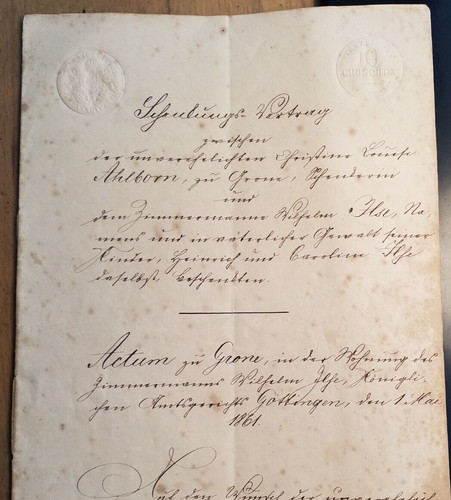 10
Schenkungs-Vertrag
zwischen
der unverehelichten Christine Louise
Ahlborn, zu Grone, Schenkerin
und
dem Zimmermanne Wilhelm Ilse, Na-
mens und in väterlicher Gewalt seiner
Kinder, Heinrich und Caroline Ilse
daselbst, beschenkten.
Actum zu Grone, in der Wohnung des
Zimmermanns Wilhelm Ilse, Königli-
chen Amtsgerichts Göttingen, den 1. Mai
1861.
Auf den Wunsch der unverehelich